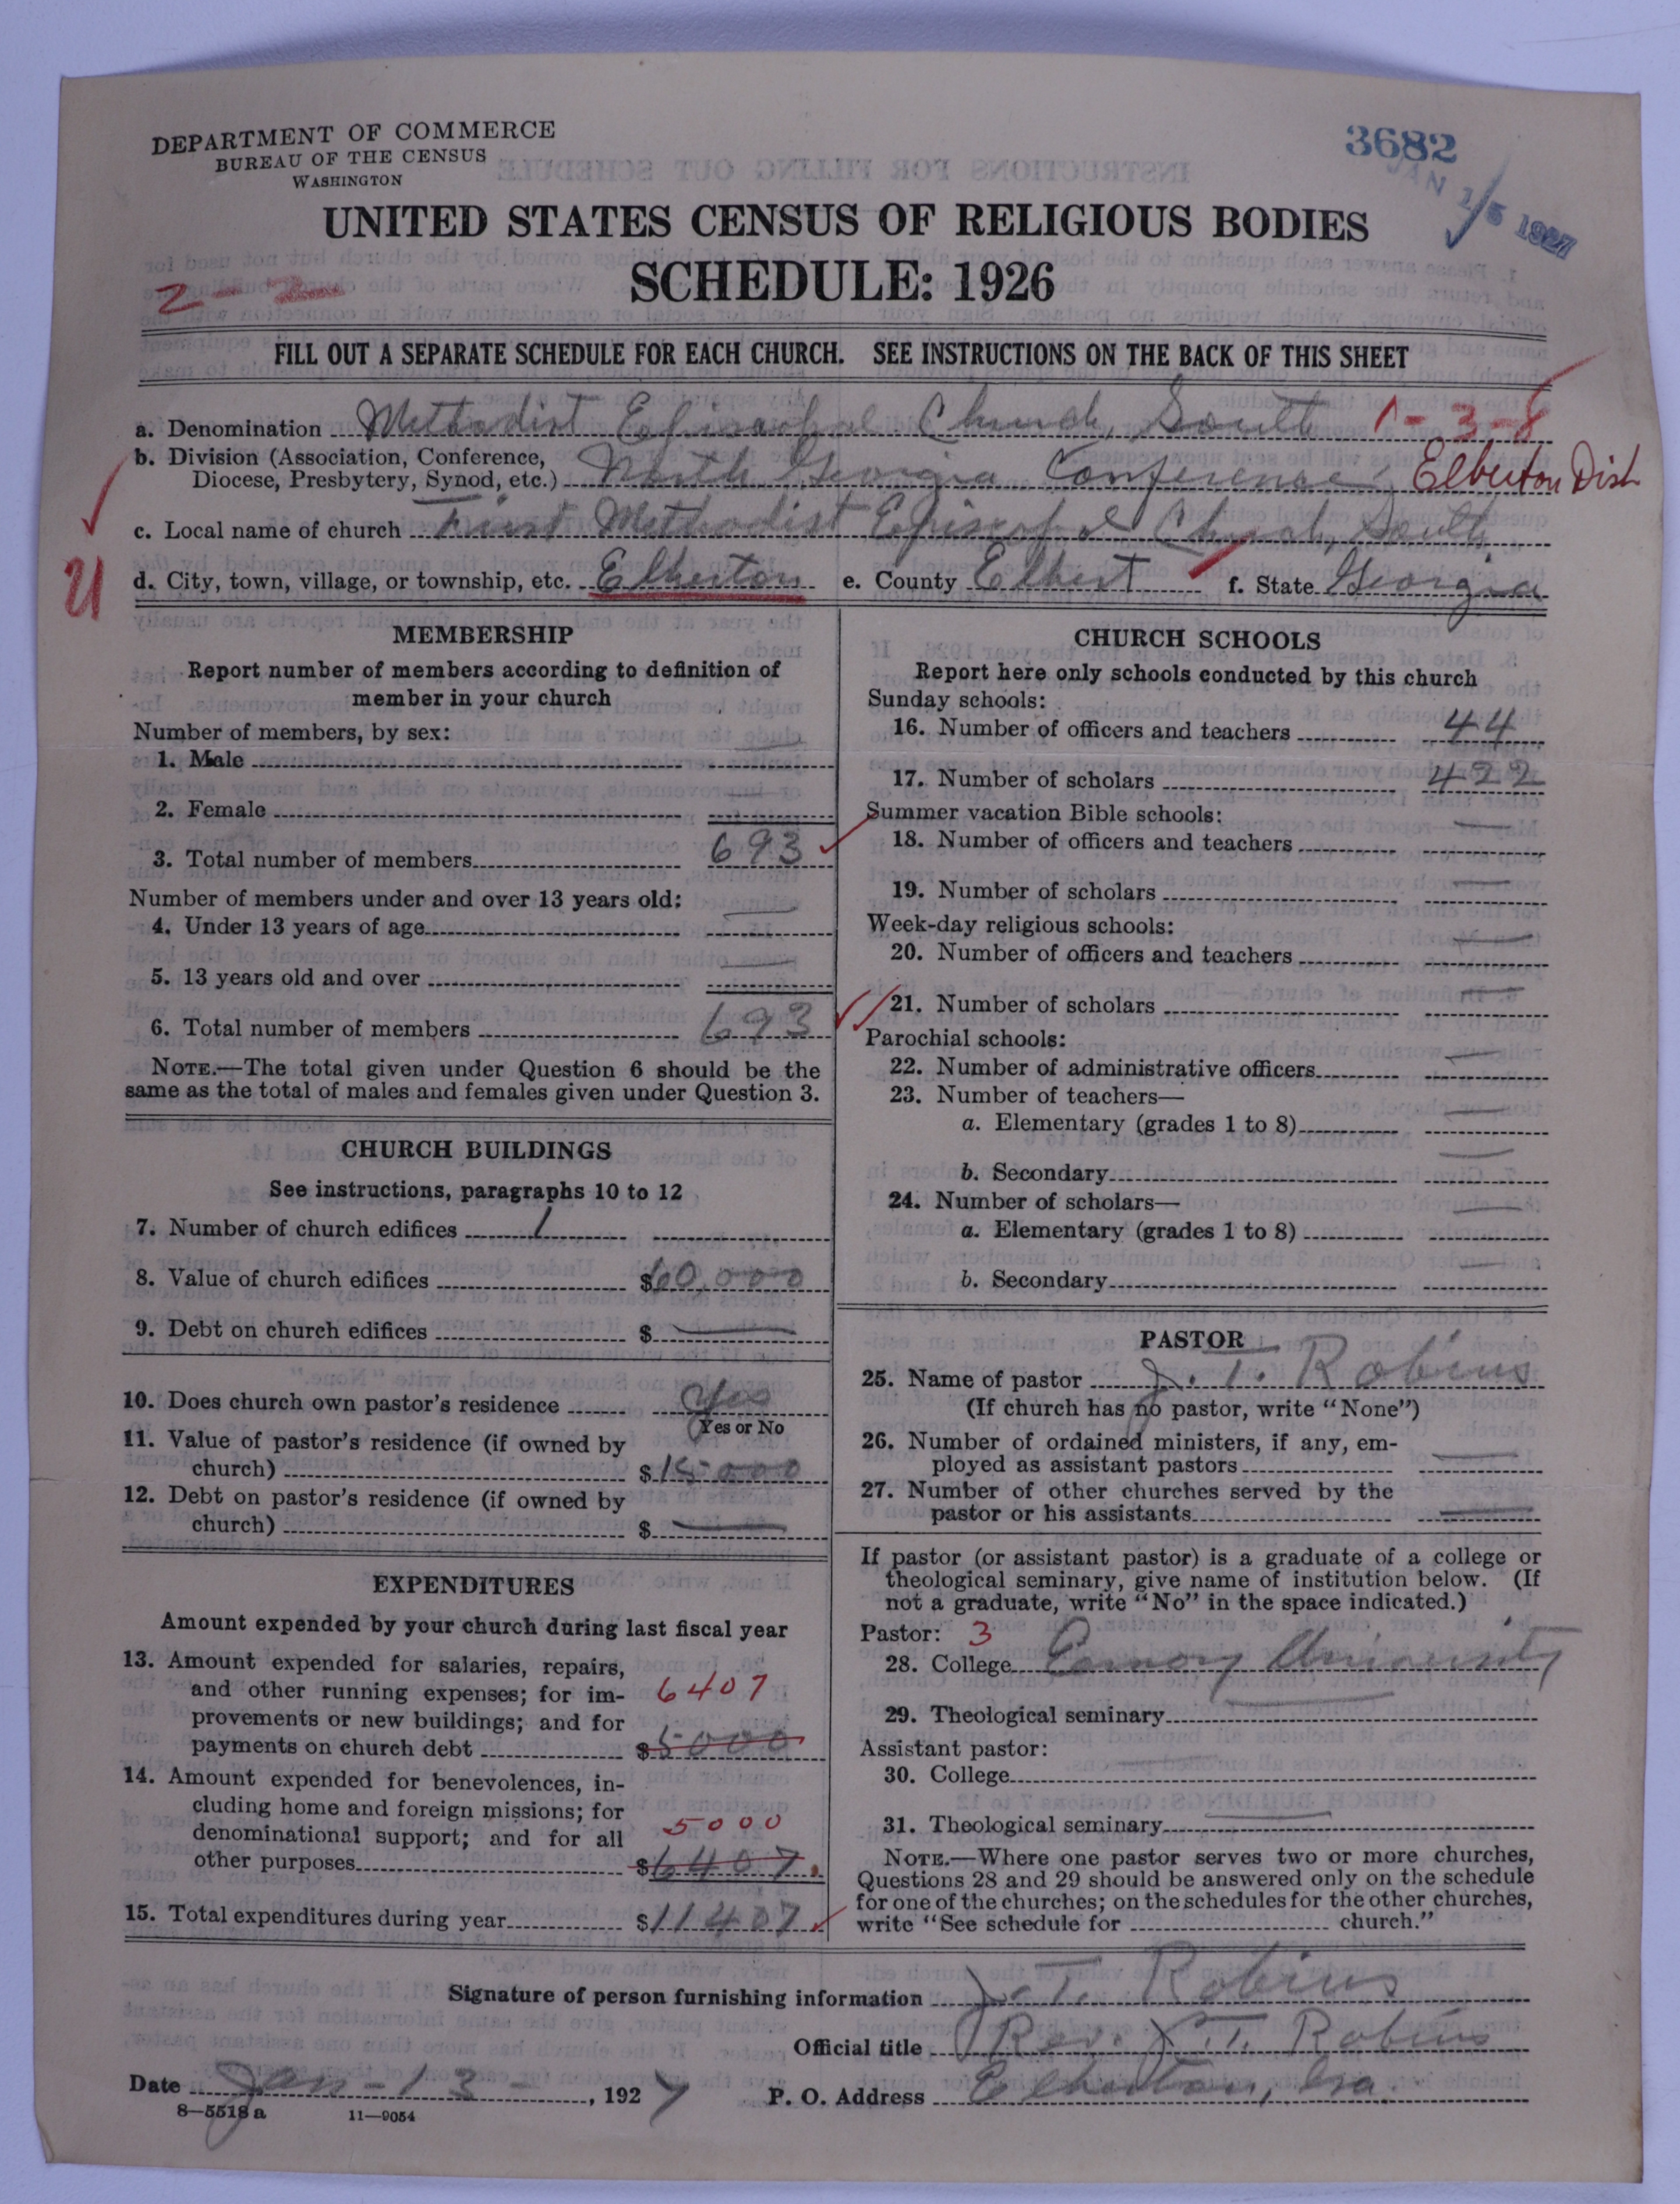 DEPARTMENT OF COMMERCE
BUREAU OF THE CENSUS
WASHINGTON
3682
JAN 15 1927
UNITED STATES CENSUS OF RELIGIOUS BODIES
SCHEDULE: 1926
2-2
FILL OUT A SEPARATE SCHEDULE FOR EACH CHURCH. SEE INSTRUCTIONS ON THE BACK OF THIS SHEET
a. Denomination Methodist Episcopal Church, South 1-3-8
b. Division (Association, Conference,
Diocese, Presbytery, Synod, etc.) North Georgia Conference; Elberton Dist
c. Local name of church First Methodist Episcopal Church, South
d. City, town, village, or township, etc. Elberton e. County Elbert f. State Georgia
MEMBERSHIP
Report number of members according to definition of
member in your church
Number of members, by sex:
1. Male —
2. Female —
3. Total number of members 693
Number of members under and over 13 years old:
4. Under 13 years of age —
5. 13 years old and over —
6. Total number of members 693
NOTE.—The total given under Question 6 should be the
same as the total of males and females given under Question 3.
CHURCH BUILDINGS
See instructions, paragraphs 10 to 12
7. Number of church edifices 1
8. Value of church edifices $60,000
9. Debt on church edifices $ —
10. Does church own pastor's residence Yes
Yes or No
11. Value of pastor's residence (if owned by
church) $15000
12. Debt on pastor's residence (if owned by
church) $ —
EXPENDITURES
Amount expended by your church during last fiscal year
13. Amount expended for salaries, repairs,
and other running expenses; for im- 6407
provements or new buildings; and for
payments on church debt $5000
14. Amount expended for benevolences, in-
cluding home and foreign missions; for
denominational support; and for all 5000
other purposes $6407.
15. Total expenditures during year $11407
CHURCH SCHOOLS
Report here only schools conducted by this church
Sunday schools:
16. Number of officers and teachers 44
17. Number of scholars 422
Summer vacation Bible schools:
18. Number of officers and teachers —
19. Number of scholars —
Week-day religious schools:
20. Number of officers and teachers —
21. Number of scholars —
Parochial schools:
22. Number of administrative officers —
23. Number of teachers—
a. Elementary (grades 1 to 8) —
b. Secondary —
24. Number of scholars—
a. Elementary (grades 1 to 8) —
b. Secondary —
PASTOR
25. Name of pastor J. T. Robins
(If church has no pastor, write "None")
26. Number of ordained ministers, if any, em-
ployed as assistant pastors —
27. Number of other churches served by the
pastor or his assistants —
If pastor (or assistant pastor) is a graduate of a college or
theological seminary, give name of institution below. (If
not a graduate, write "No" in the space indicated.)
Pastor: 3
28. College Emory University
29. Theological seminary —
Assistant pastor:
30. College
31. Theological seminary —
NOTE.—Where one pastor serves two or more churches,
Questions 28 and 29 should be answered only on the schedule
for one of the churches; on the schedules for the other churches,
write "See schedule for church."
Signature of person furnishing information J. T. Robins
Official title Rev. J. T. Robins
Date Jan-13-, 1927 P. O. Address Elberton, Ga.
8—5518 a 11—9054